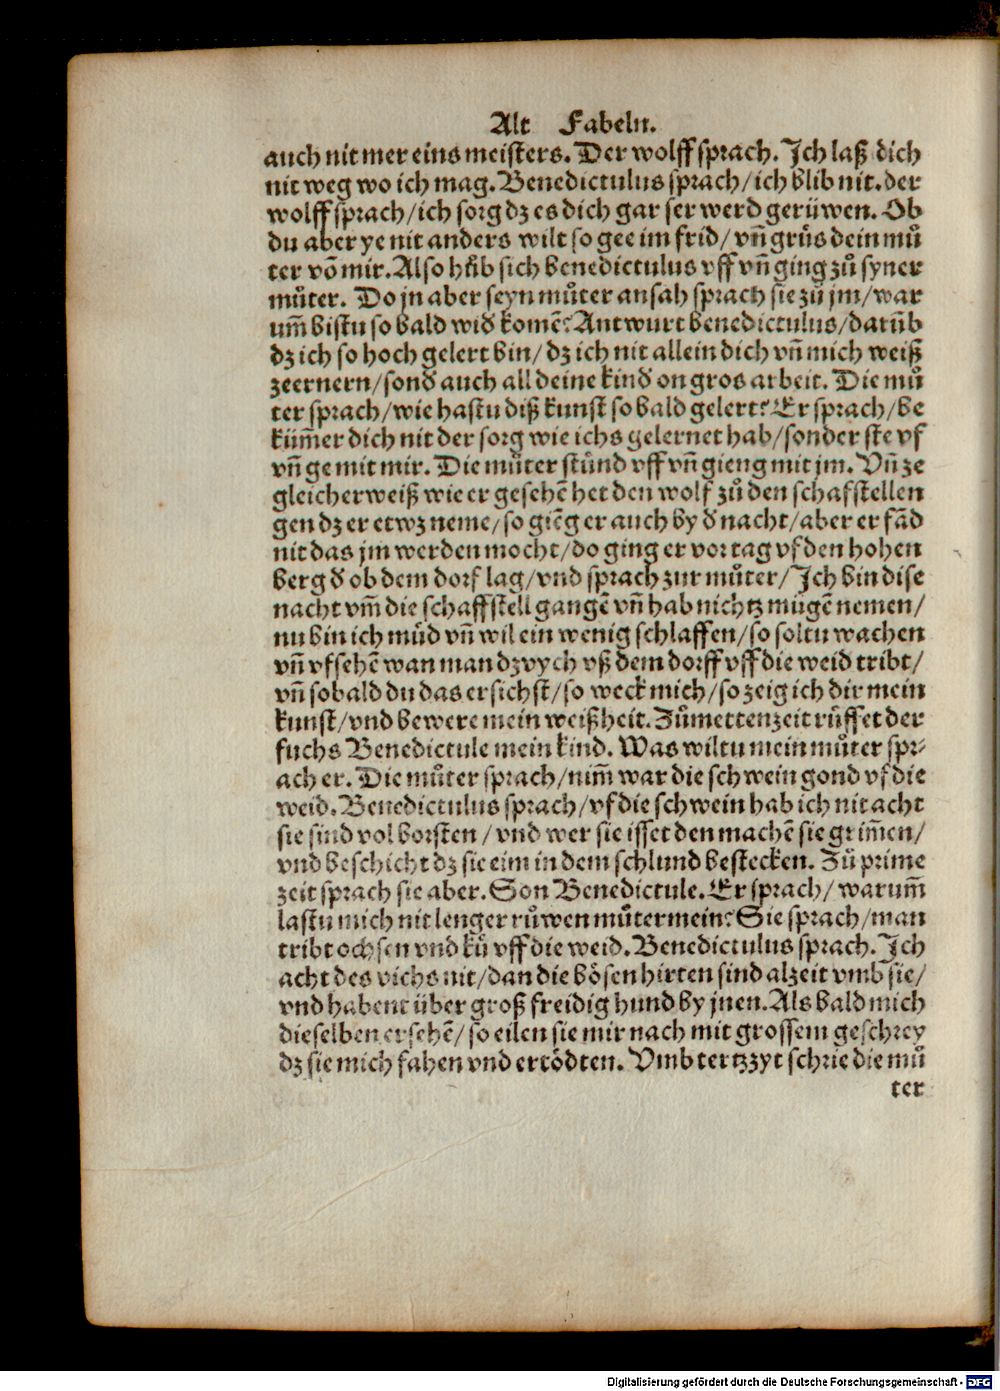 Alt Fabeln.
auch nit mer eins meisters. Der wolff sprach. Ich laß dich
nit weg wo ich mag. Benedictulus sprach/ ich blib nit. der
wolff sprach/ ich sorg dz es dich gar ser werd gerüwen. Ob
du aber ye nit anders wilt so gee im frid/ vñ grüs dein mů
ter võ mir. Also hůb sich benedictulus vff vñ ging zů syner
můter. Do jn aber seyn můter ansah sprach sie zů jm/ war
um̃ bistu so bald wid̕ komẽ? Antwurt benedictulus/ darũb
dz ich so hoch gelert bin/ dz ich nit allein dich vñ mich weiß
zeernern/ sond̕ auch all deine kind̕ on gros arbeit. Die mů
ter sprach/ wie hastu diß kunst so bald gelert? Er sprach/ be
küm̃er dich nit der sorg wie ichs gelernet hab/ sonder ste vf
vñ ge mit mir. Die můter stůnd vff vñ gieng mit jm. Vñ ze
gleicherweiß wie er gesehẽ het den wolf zů den schafstellen
gen dz er etwz neme/ so giẽg er auch by d̕ nacht/ aber er fãd
nit das jm werden mocht/ do ging er vor tag vf den hohen
berg d̕ ob dem dorf lag/ vnd sprach zur můter/ Ich bin dise
nacht vm̃ die schaffstell gangẽ vñ hab nichtz mügẽ nemen/
nu bin ich müd vñ wil ein wenig schlaffen/ so soltu wachen
vñ vfsehẽ wan man dz vych vß dem dorff vff die weid tribt/
vñ sobald du das ersichst/ so weck mich/ so zeig ich dir mein
kunst/ vnd bewere mein weißheit. Zů mettenzeit růffet der
fuchs Benedictule mein kind. Was wiltu mein můter spr⸗
ach er. Die můter sprach/ nim̃ war die schwein gond vf die
weid. Benedictulus sprach/ vf die schwein hab ich nit acht
sie sind vol borsten/ vnd wer sie isset den machẽ sie grim̃en/
vnd beschicht dz sie eim in dem schlund bestecken. Zů prime
zeit sprach sie aber. Son Benedictule. Er sprach/ warum̃
lastu mich nit lenger růwen můter mein? Sie sprach/ man
tribt ochsen vnd kü vff die weid. Benedictulus sprach. Ich
acht des vichs nit/ dan die bösen hirten sind alzeit vmb sie/
vnd habent über groß freidig hund by jnen. Als bald mich
dieselben ersehẽ/ so eilen sie mir nach mit grossem geschrey
dz sie mich fahen vnd ertödten. Vmb tertzzyt schrie die mů
ter
Digitalisierung gefördert durch die Deutsche Forschungsgemeinschaft - DFG